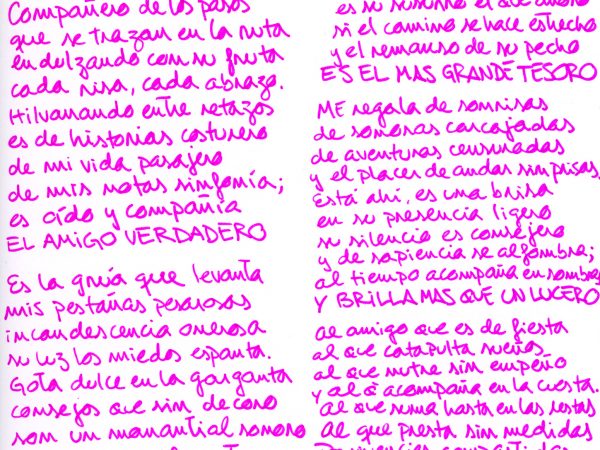 Compañero de los pasos
que se trazan en la ruta
endulzando con su fruta
cada risa, cada abrazo.
Hilvanando entre retazos
es de historias costurero
de mi vida pasajero
de mis notas sinfonía;
es oído y compañía
EL AMIGO VERDADERO
Es la grúa que levanta
mis pestañas pesarosas
incandescencia onerosa
su luz los miedos espanta.
Gota dulce en la garganta
consejos que sin decoro
son un manantial sonoro
es su susurro el que
si el camino se hace estrecho
y el remanso de su pecho
ES EL MAS GRANDE TESORO
ME regala de sonrisas
de sonoras carcajadas
de aventuras censuradas
y el placer de andar sin prisas,
Está ahí, es una brisa
en su presencia ligero
su silencio es consejero
y de sapiencia se alfombra;
al tiempo acompaña en sombras
Y BRILLA MAS QUE UN LUCERO
al amigo que es de fiesta
al que catapulta sueños
al que nutre sin empeño
y al q acompaña en la cuesta.
al que suma hasta en las restas
al que presta sin medidas